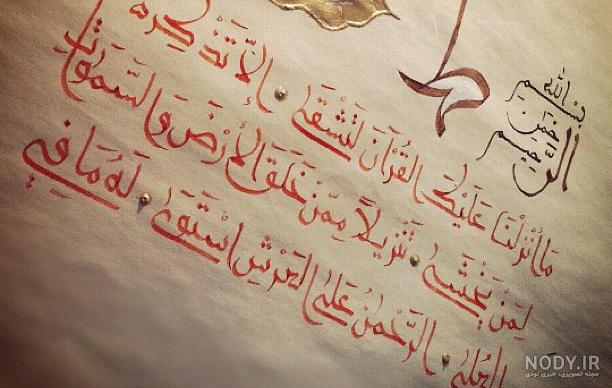 بسم الله
الرحمن
الرحيم
طه
مَا أَنْزَلْنَا عَلَيْكَ الْقُرْآنَ لِتَشْقَىٰ إِلَّا تَذْكِرَةً
لِمَنْ يَخْشَىٰ تَنْزِيلًا مِمَّنْ خَلَقَ الْأَرْضَ وَالسَّمٰوَاتِ
الْعُلَىٰ الرَّحْمٰنُ عَلَى الْعَرْشِ اسْتَوَىٰ لَهُ مَا فِي
NODY.IR
مجله تصویری، خبری نودی